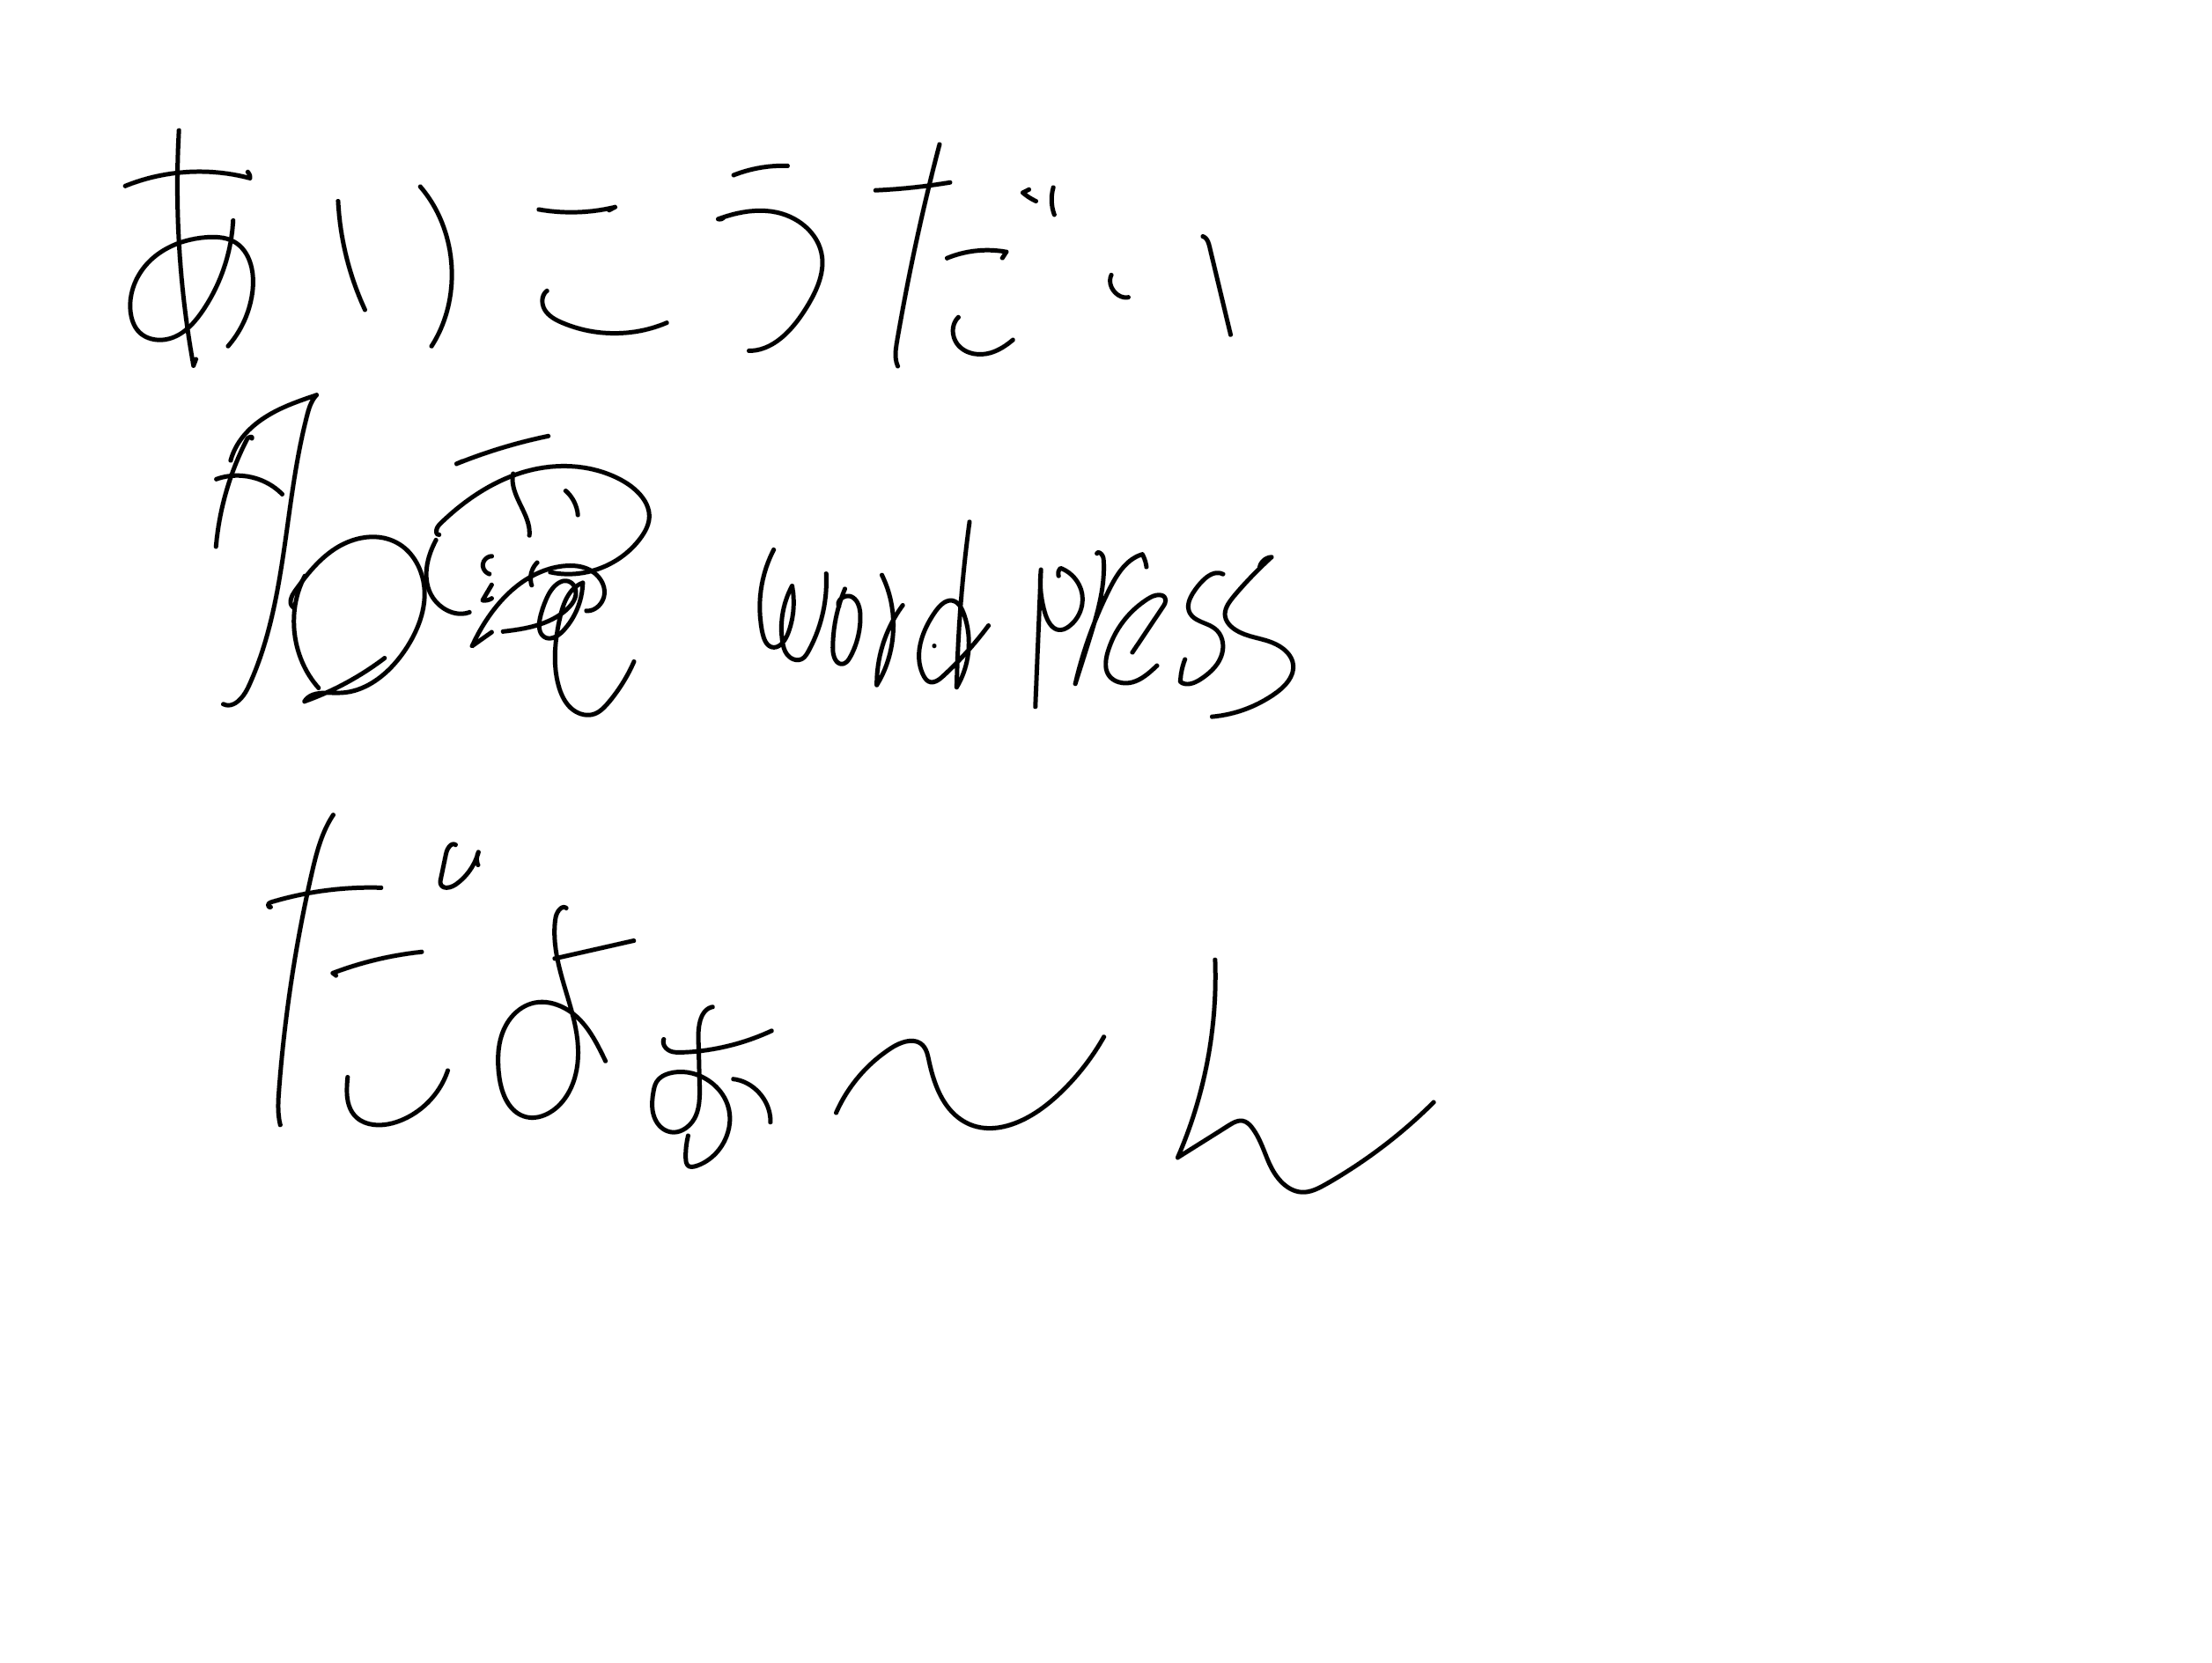 ありこうだい
wordpress
だよぉ〜ん